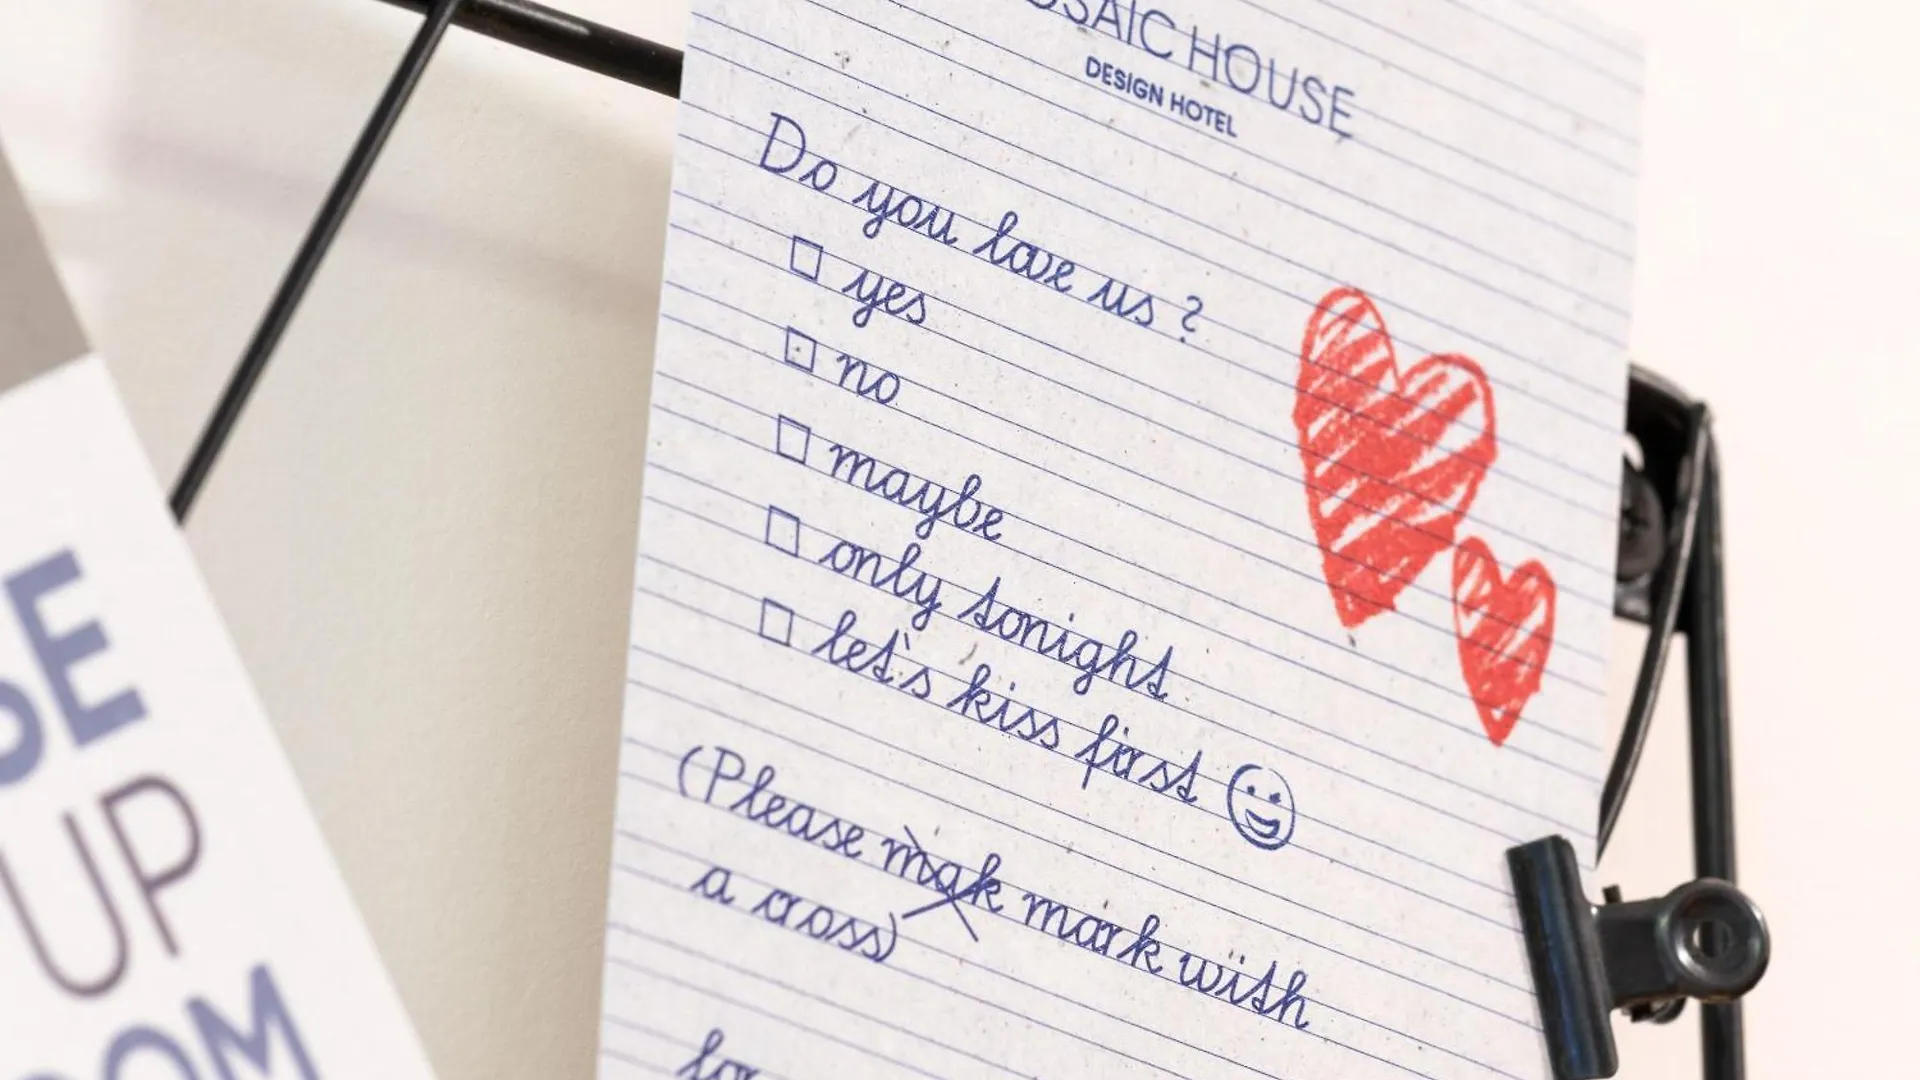 MOSAIC HOUSE
DESIGN HOTEL
Do you love us ?
yes
no
maybe
only tonight
let's kiss first
(Please mak mark with
a cross)
for
SE
UP
OOM